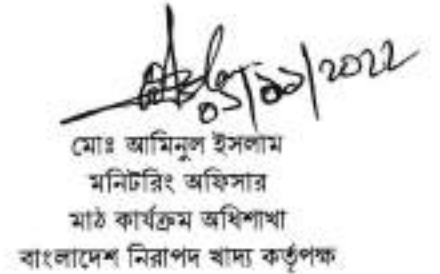 ০১/১১/২০২২
মোঃ আমিনুল ইসলাম
মনিটরিং অফিসার
মাঠ কার্যক্রম অধিশাখা
বাংলাদেশ নিরাপদ খাদ্য কর্তৃপক্ষ